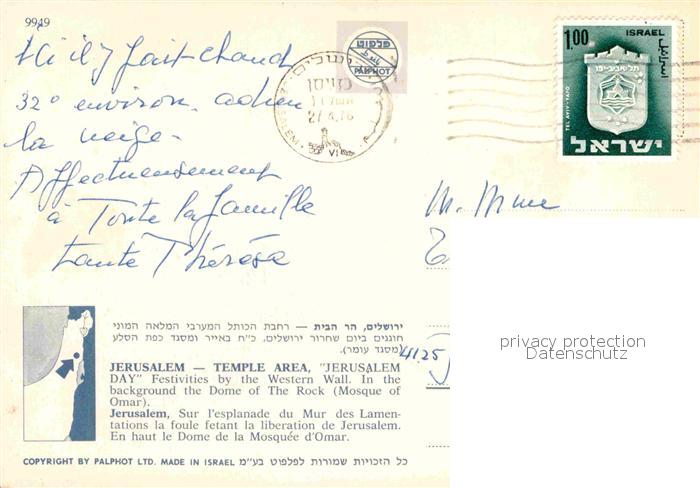 9949
Ici il y fait chaud
32° environ. adieu
la neige.
Affectueusement
à Toute la famille
tante Thérésa
פלפוט
PALPHOT
ירושלים
כז ניסן
27.4.76
JERUSALEM
VI
1.00 ISRAEL
תל-אביב-יפו
TEL AVIV-YAFO
اسرائيل
ישראל
M. Mme
privacy protection
Datenschutz
4125
ירושלים, הר הבית — רחבת הכותל המערבי המלאה המוני
חוגגים ביום שחרור ירושלים, כ״ח באייר ומסגד כפת הסלע
(מסגד עומר).
JERUSALEM — TEMPLE AREA, "JERUSALEM
DAY" Festivities by the Western Wall. In the
background the Dome of The Rock (Mosque of
Omar).
Jerusalem, Sur l'esplanade du Mur des Lamen-
tations la foule fetant la liberation de Jerusalem.
En haut le Dome de la Mosquée d'Omar.
COPYRIGHT BY PALPHOT LTD. MADE IN ISRAEL כל הזכויות שמורות לפלפוט בע״מ